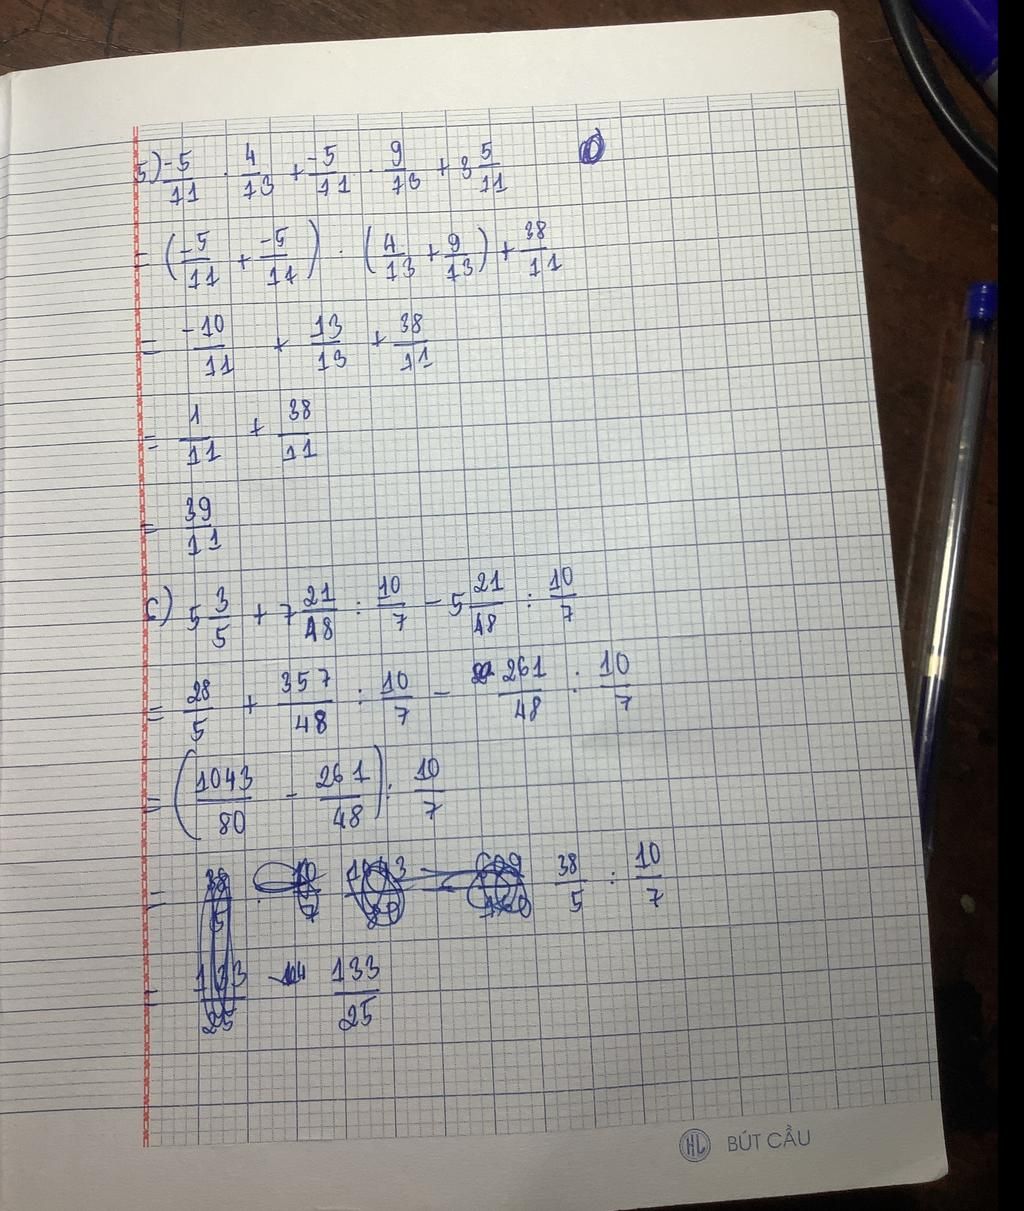 b) -5/11 . 4/13 + -5/11 . 9/13 + 3 5/11
= (-5/11 + -5/11) . (4/13 + 9/13) + 38/11
= -10/11 + 13/13 + 38/11
= 1/11 + 38/11
= 39/11
c) 5 3/5 + 7 21/48 : 10/7 - 5 21/48 : 10/7
= 28/5 + 357/48 : 10/7 - 261/48 : 10/7
= (1043/80 - 261/48) : 10/7
= 38/5 : 10/7
= 133/25
HL BÚT CẦU